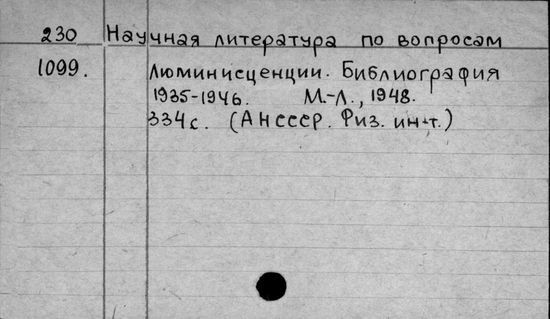 230 Научная литература по вопросам
1099. люминисценции. Библиография
1935-1946. М.-Л., 1948.
334 с. (АНСССР. Физ. ин-т.)